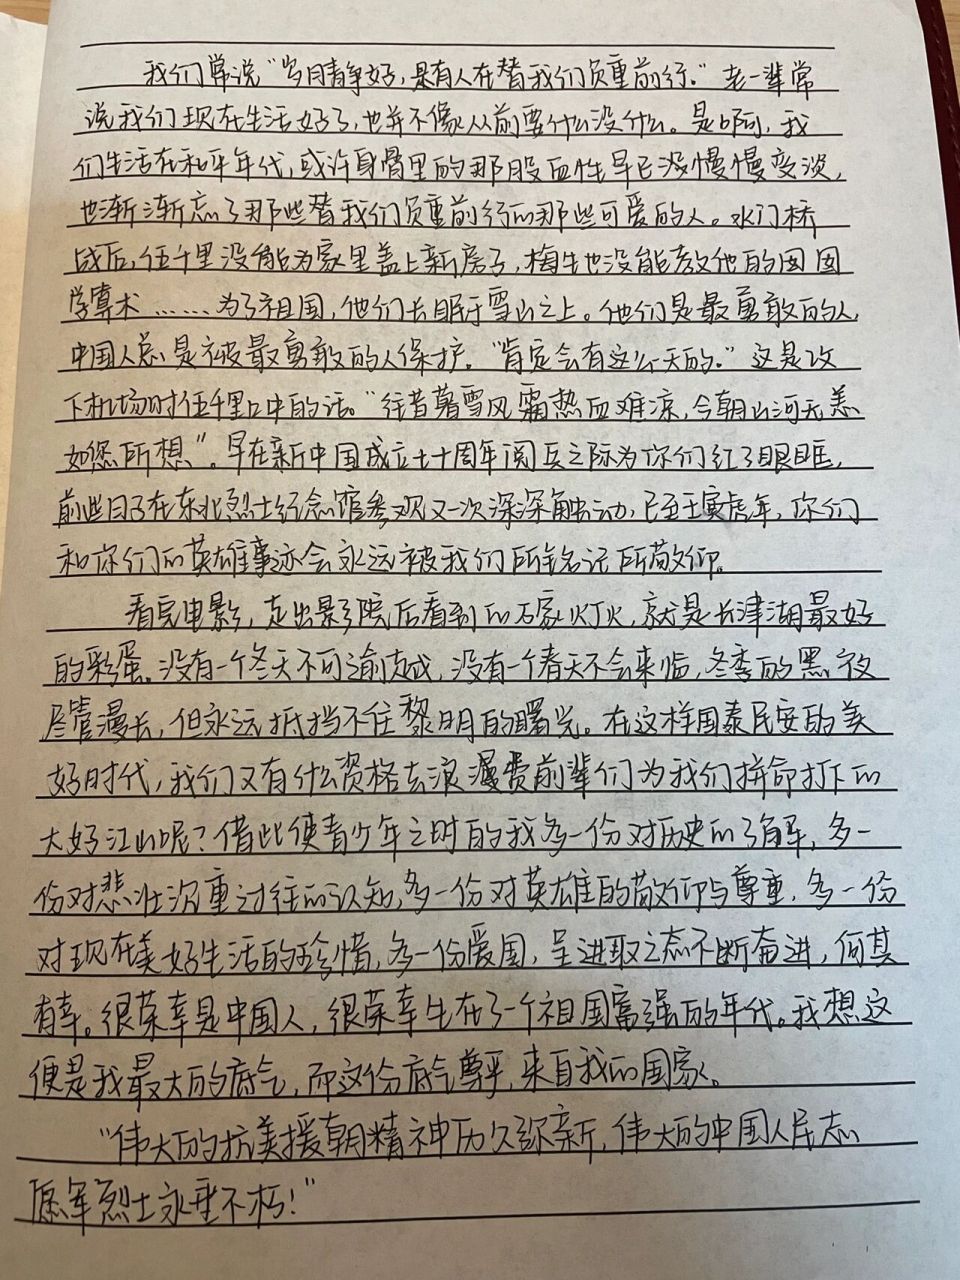 我们常说“岁月静好,是有人在替我们负重前行。”老一辈常
说我们现在生活好了,也并不像从前要什么没什么。是啊,我
们生活在和平年代,或许身骨里的那股血性早已没慢慢变淡,
也渐渐忘了那些替我们负重前行的那些可爱的人。水门桥
战后,伍千里没能为家里盖上新房子,梅生也没能教他的囡囡
学算术……为了祖国,他们长眠于雪山之上。他们是最勇敢的人,
中国人总是被最勇敢的人保护。“肯定会有这么一天的。”这是攻
下机场时伍千里口中的话。“往昔着雪风霜热血难凉,今朝山河无恙
如您所想”。早在新中国成立七十周年阅兵之际为你们红了眼眶,
前些日子在东北烈士纪念馆参观又一次深深触动,已至壬寅虎年,你们
和你们的英雄事迹会永远被我们所铭记所敬仰。
看完电影,走出影院后看到的万家灯火,就是长津湖最好
的彩蛋。没有一个冬天不可逾越,没有一个春天不会来临,冬季的黑夜
尽管漫长,但永远抵挡不住黎明的曙光。在这样国泰民安的美
好时代,我们又有什么资格去浪费前辈们为我们拼命打下的
大好江山呢?借此使青少年之时的我多一份对历史的了解,多一
份对悲壮沉重过往的认知,多一份对英雄的敬仰与尊重,多一份
对现在美好生活的珍惜,多一份爱国,呈进取之态不断奋进,何其
有幸。很荣幸是中国人,很荣幸生在了一个祖国富强的年代。我想这
便是我最大的底气,而这份底气尊严,来自我的国家。
“伟大的抗美援朝精神历久弥新,伟大的中国人民志
愿军烈士永垂不朽!”